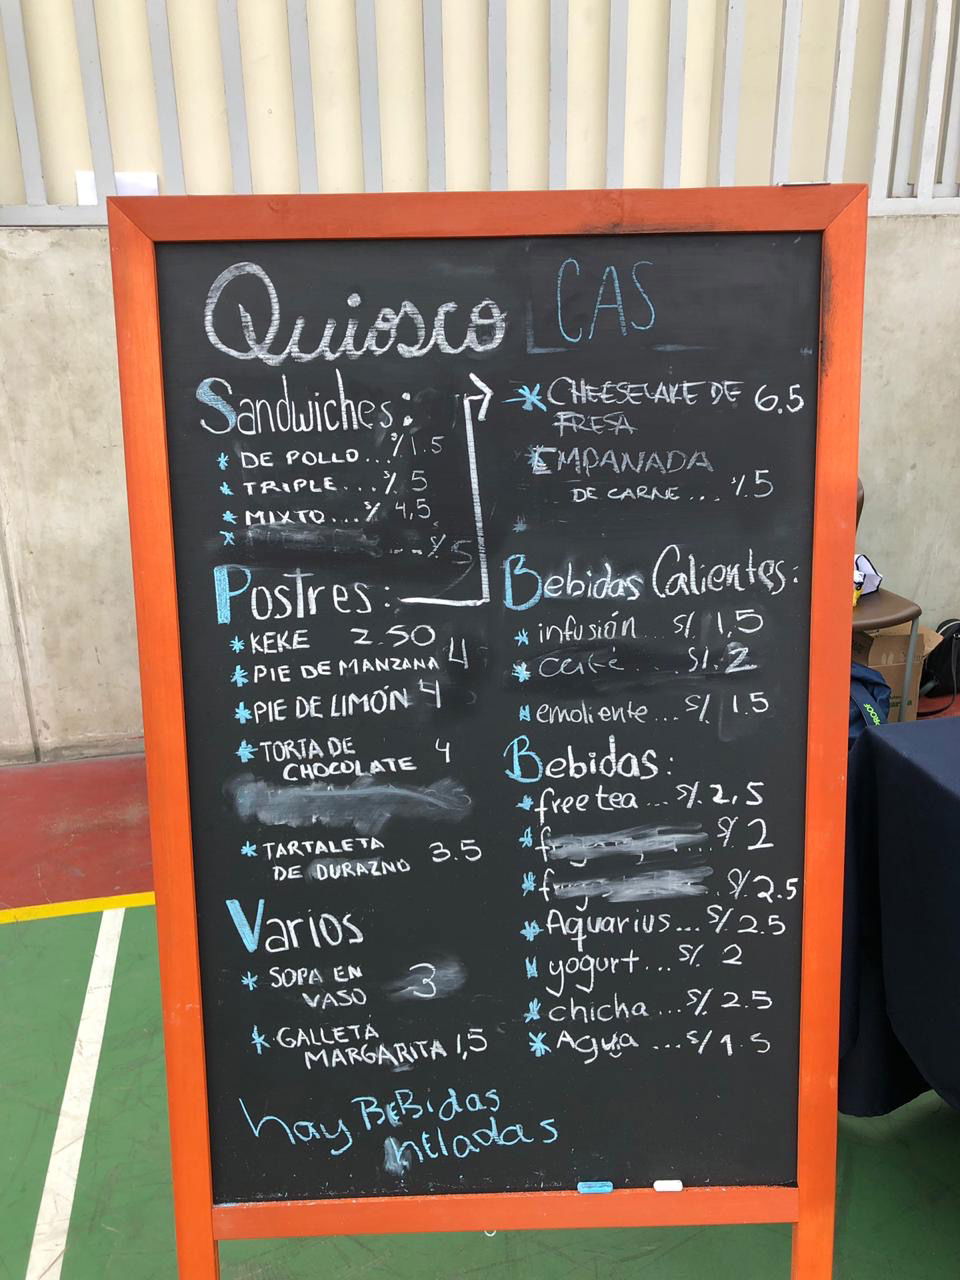 Quiosco CAS
Sandwiches:
* DE POLLO... S/1.5
* TRIPLE... S/. 5
* MIXTO... S/. 4,5
* ... S/. 5
Postres:
* KEKE 2.50
* PIE DE MANZANA 4
* PIE DE LIMÓN 4
* TORTA DE 4
CHOCOLATE
* TARTALETA 3.5
DE DURAZNO
Varios
* SOPA EN 3
VASO
* GALLETA
MARGARITA 1,5
* CHEESECAKE DE 6.5
FRESA
EMPANADA
DE CARNE... S/. 5
*
Bebidas Calientes:
* infusión S/ 1,5
* café... S/. 2
* emoliente... S/. 1.5
Bebidas:
* free tea... S/. 2,5
* S/. 2
* S/. 2.5
* Aquarius... S/. 2.5
* yogurt... S/. 2
* chicha... S/. 2.5
* Agua ...S/ 1.5
hay BEBidas
hEladas